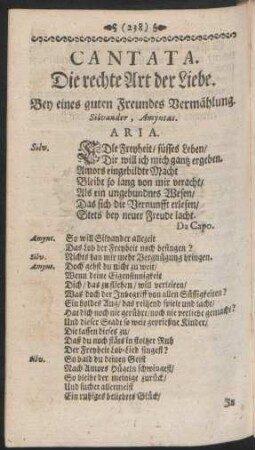 (238)
CANTATA.
Die rechte Art der Liebe.
Bey eines guten Freundes Vermählung.
Silvander, Amyntas.
ARIA.
Silv. EDle Freyheit/ süsses Leben/
Dir will ich mich gantz ergeben.
Amors eingebildte Macht
Bleibt so lang von mir veracht/
Als ein ungebundnes Wesen/
Das sich die Vernunfft erlesen/
Stets bey neuer Freude lacht.
Da Capo.
Amynt. So will Silvander allezeit
Das Lob der Freyheit noch besingen?
Silv. Nichts kan mir mehr Vergnügung bringen.
Amynt. Doch gehst du nicht zu weit/
Wenn deine Eigensinnigkeit
Dich/ das zu fliehen/ will verleiten/
Was doch der Innbegriff von allen Süßigkeiten?
Ein holdes Aug/ das reitzend spielt und lacht/
Hat dich noch nie gerührt/ noch nie verliebt gemacht?
Und dieser Stadt so weit gepriesne Kinder/
Die lassen dieses zu/
Daß du noch stäts in stoltzer Ruh
Der Freyheit Lob-Lied singest?
Silv. So bald du deinen Geist
Nach Amors Hügeln schwingest/
So bleibt der meinige zurück/
Und suchet allermeist
Ein ruhiges beliebtes Glück/
In